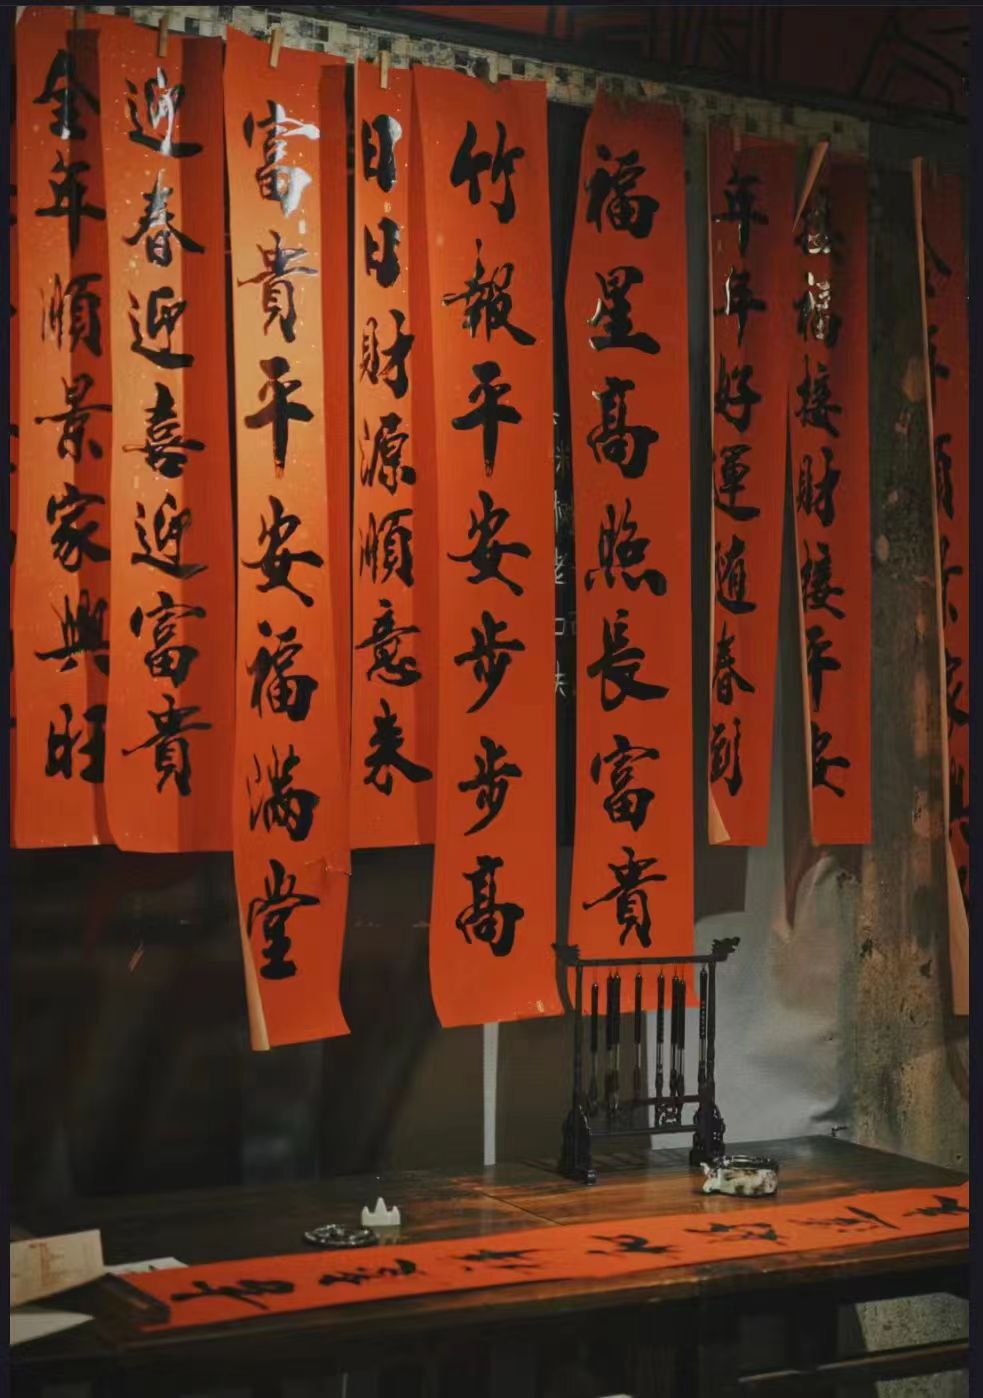 全年順景家興旺
迎春迎喜迎富貴
富貴平安福滿堂
日日財源順意来
竹報平安步步高
福星高照長富貴
年年好運随春到
接福接財接平安